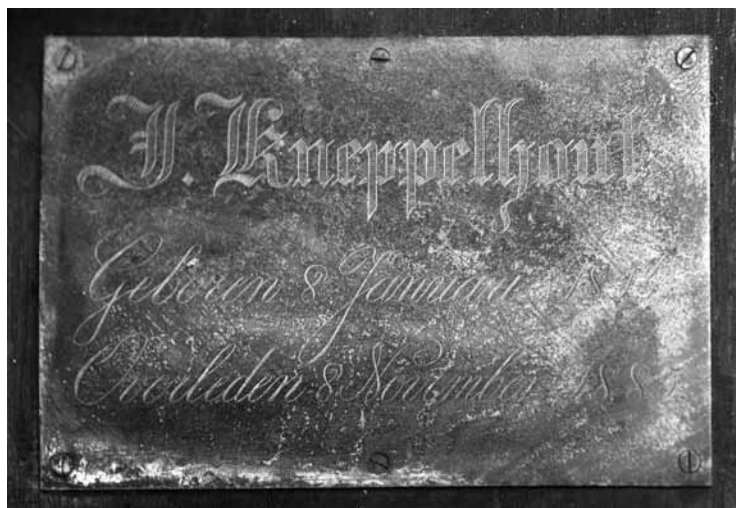 J. Kneppelhout
Geboren 8 Januari 1814
Overleden 8 November 1885